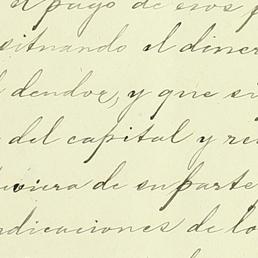 el pago de esos
situando el diner
deudor, y que si
del capital y re
hiciera de su parte
ndicaciones de lo